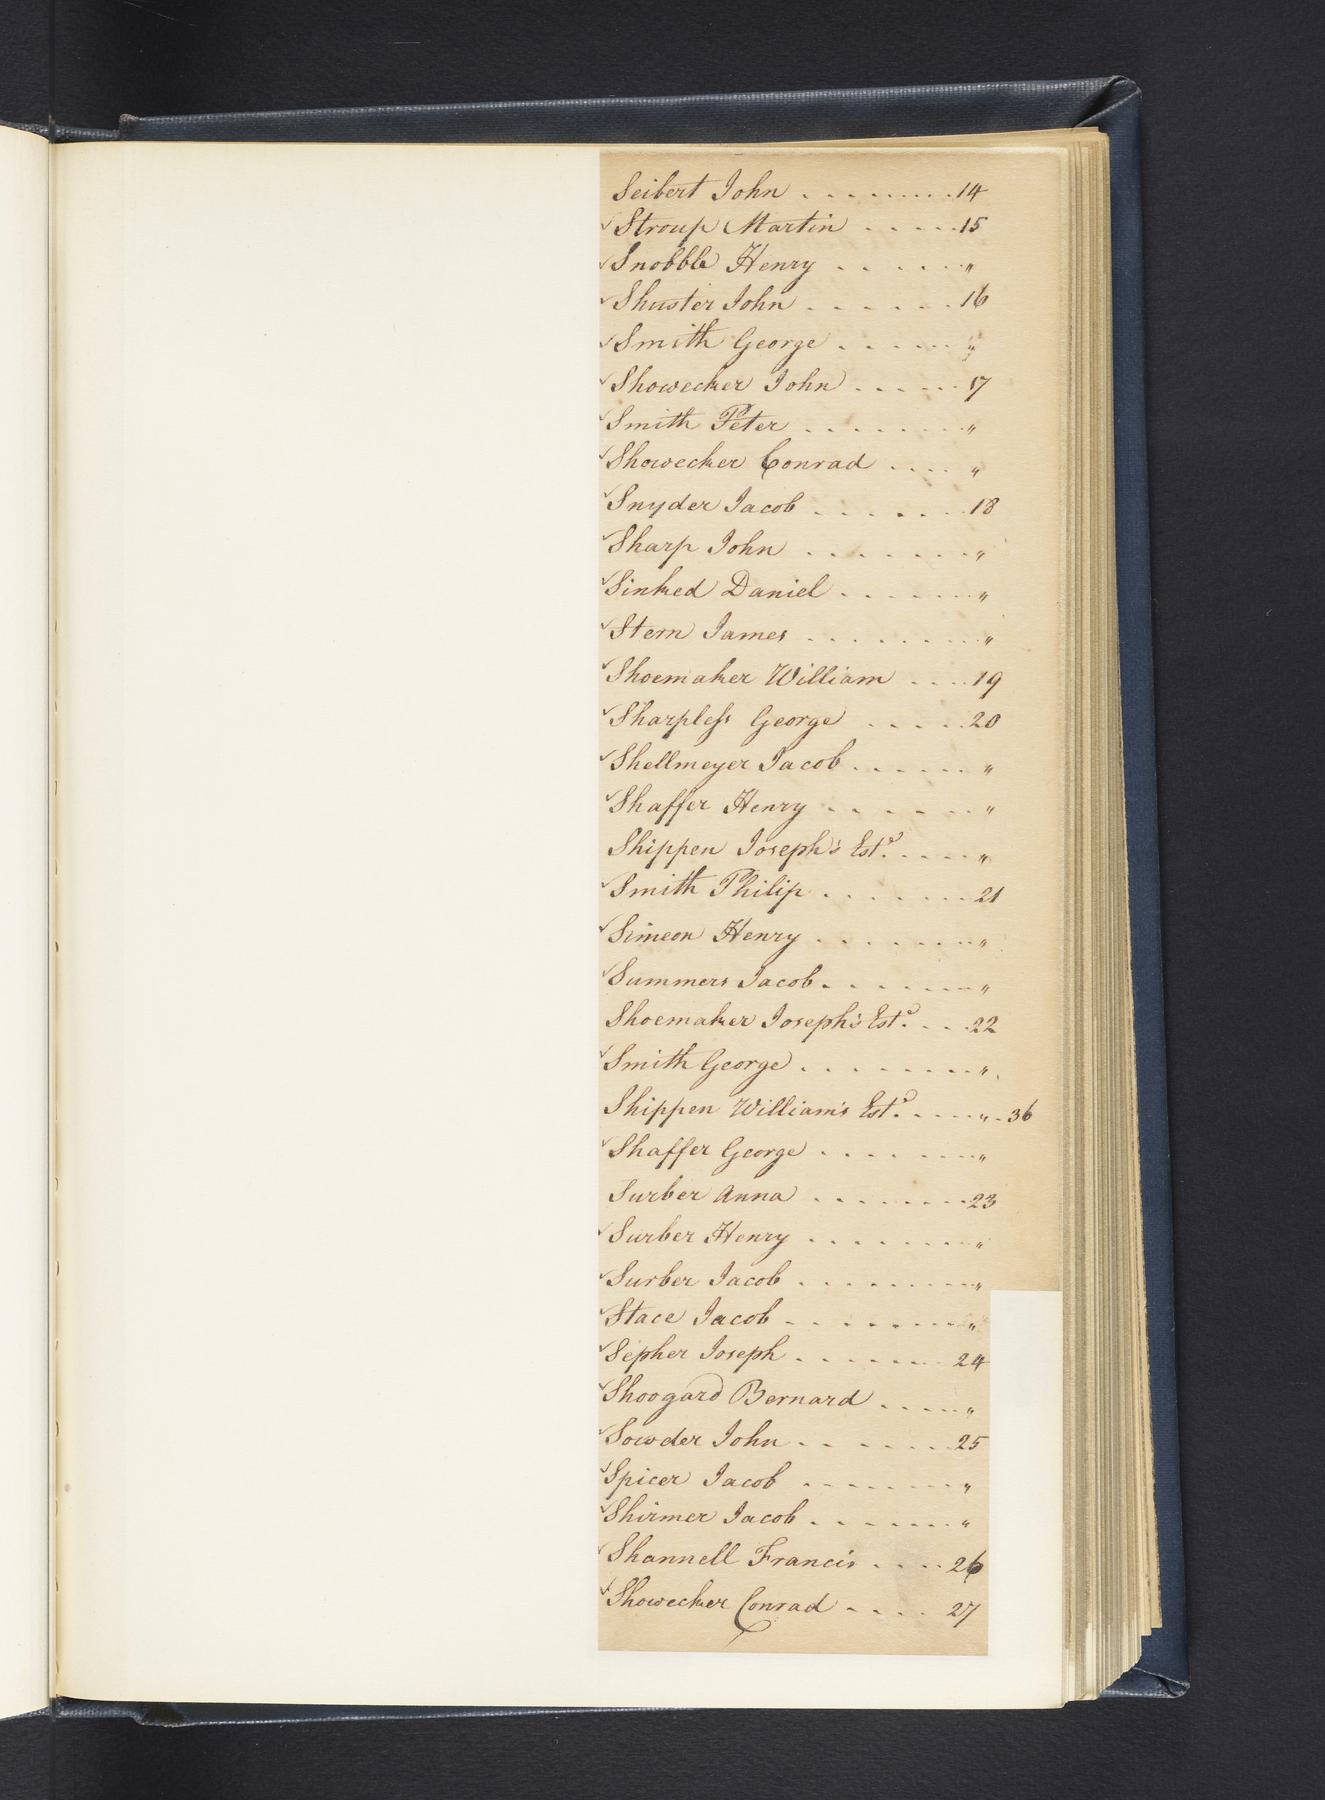 Seibert John . . . . . . . . . 14
✓ Stroup Martin . . . . . 15
✓ Snobble Henry . . . . . . "
✓ Shuster John . . . . . . 16
✓ Smith George . . . . . . "
✓ Showecker John . . . . . . 17
✓ Smith Peter . . . . . . . . "
✓ Showecker Conrad . . . . "
✓ Snyder Jacob . . . . . . . 18
✓ Sharp John . . . . . . . . "
✓ Sinked Daniel . . . . . . . "
✓ Stern James . . . . . . . . "
✓ Shoemaker William . . . . 19
✓ Sharpless George . . . . . 20
✓ Shellmeyer Jacob . . . . . . "
✓ Shaffer Henry . . . . . . . "
Shippen Joseph's Est.e . . . . "
✓ Smith Philip . . . . . . . . 21
✓ Simeon Henry . . . . . . . . "
✓ Summers Jacob . . . . . . . . "
Shoemaker Joseph's Est.e . . . 22
✓ Smith George . . . . . . . . . "
Shippen William's Est.e . . . . . " . 36
✓ Shaffer George . . . . . . . . "
Surber Anna . . . . . . . . 23
✓ Surber Henry . . . . . . . . . "
✓ Surber Jacob . . . . . . . . . "
✓ Stace Jacob . . . . . . . . . "
✓ Sepher Joseph . . . . . . . 24
✓ Shoogard Bernard . . . . . "
✓ Sowder John . . . . . . . 25
✓ Spicer Jacob . . . . . . . . "
✓ Shirmer Jacob . . . . . . . . "
✓ Shannell Francis . . . . 26
✓ Showecker Conrad . . . . 27